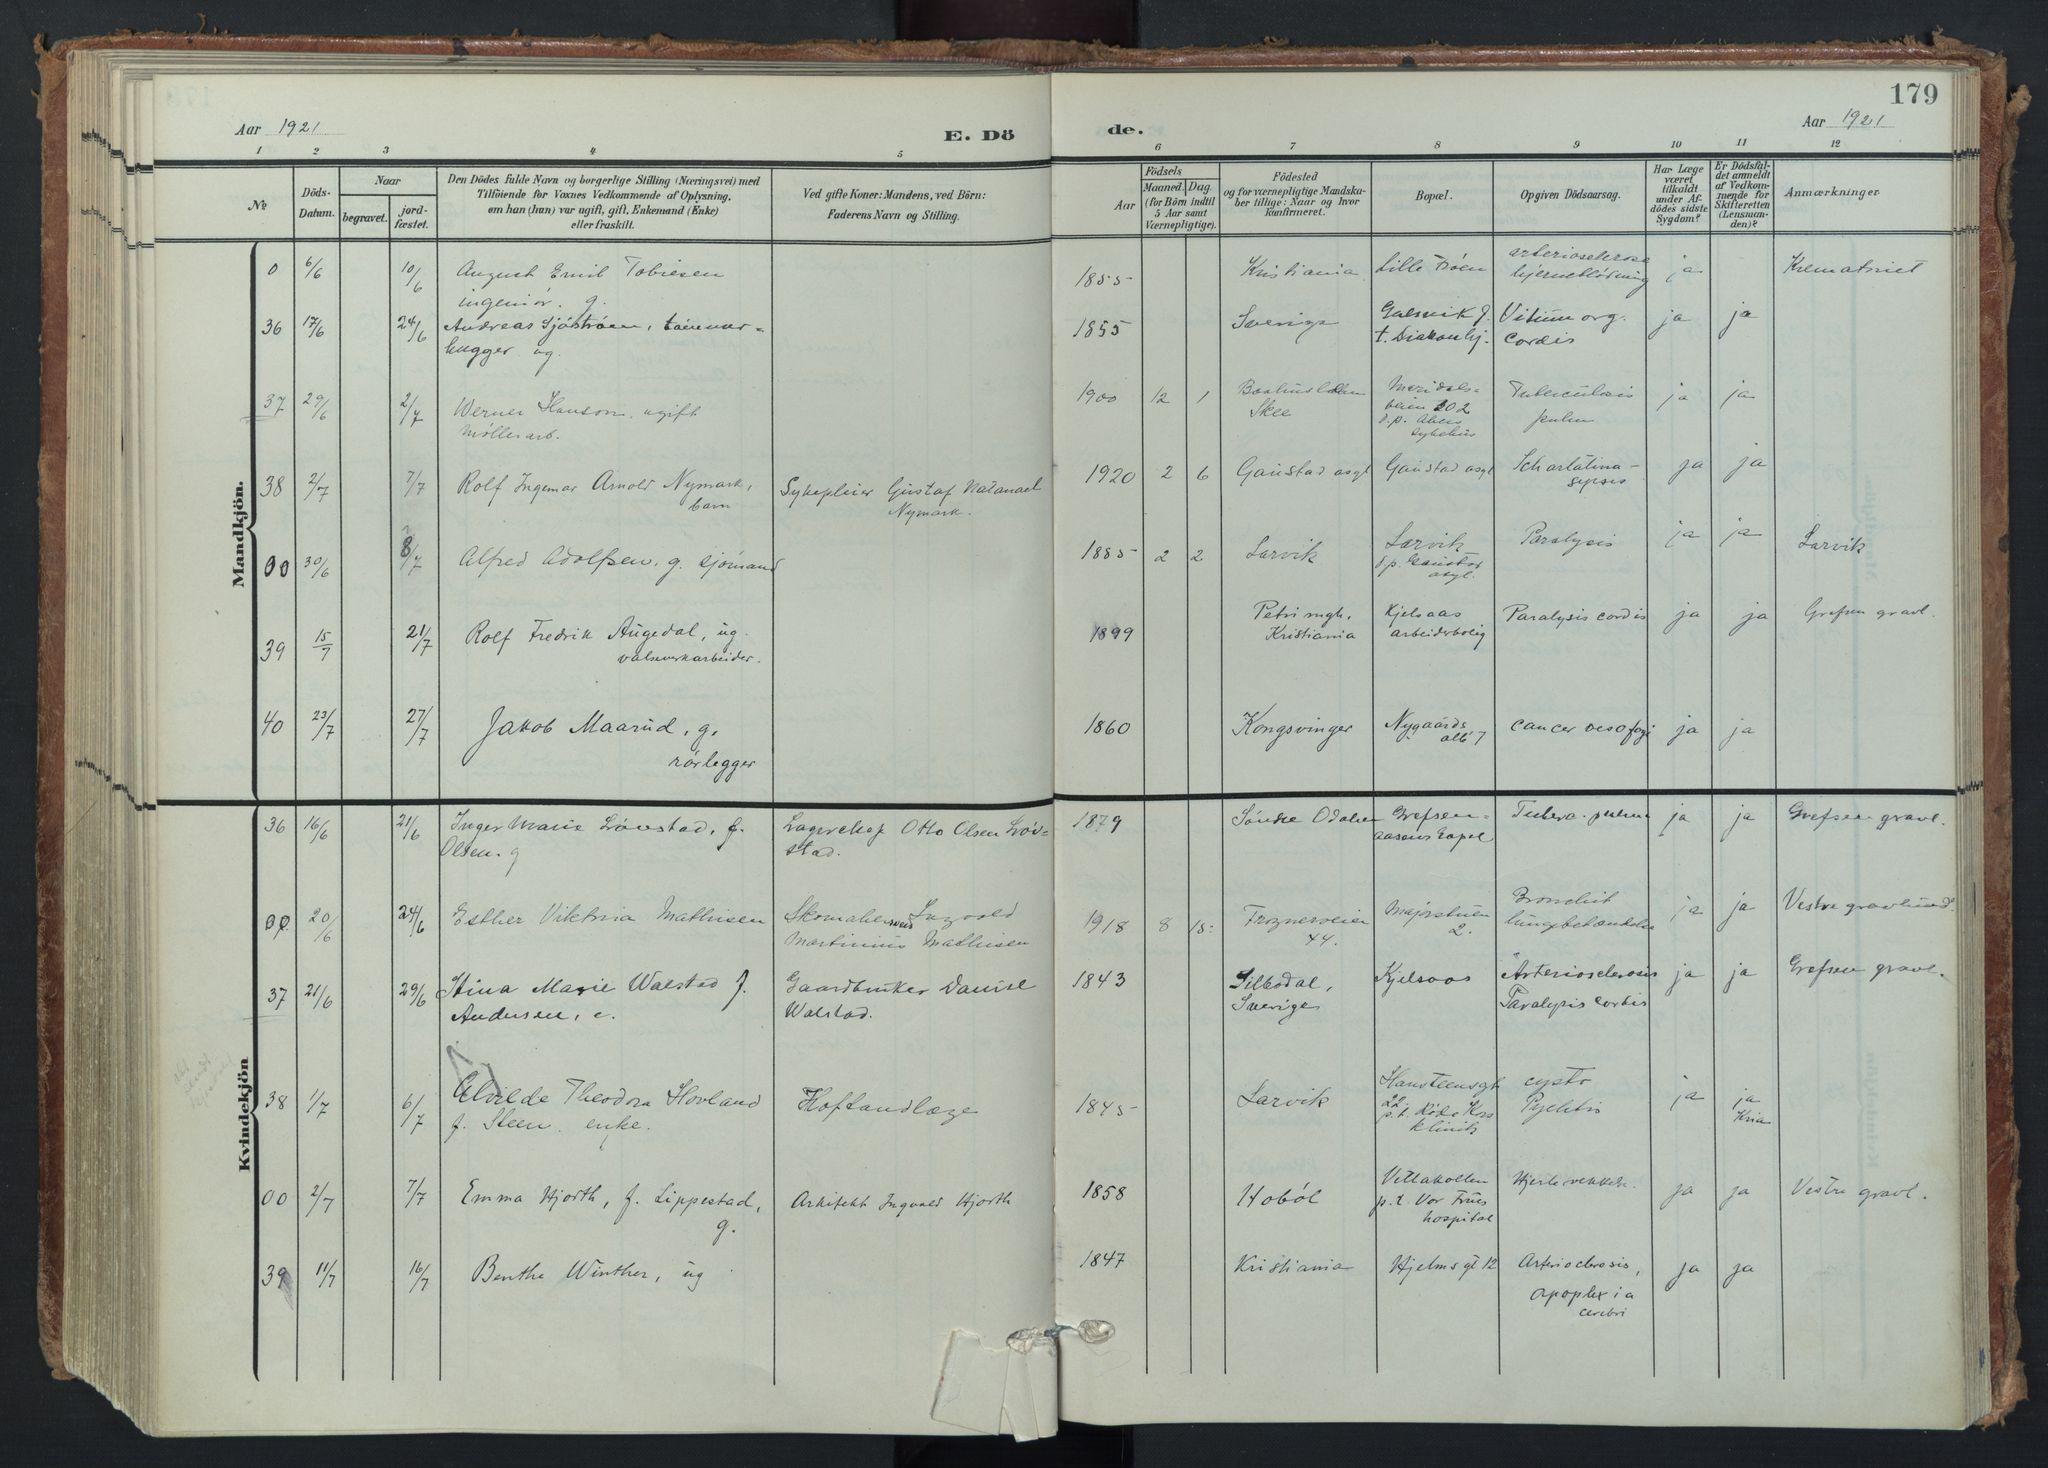 179
Aar 1921
E. Dö
de.
Aar 1921
1 2 3 4 5 6 7 8 9 10 11 12
№
Döds-
Datum.
Naar
begravet.
jord-
fæstet.
Den Dödes fulde Navn og borgerlige Stilling (Næringsvei) med
Tilföiende for Voxnes Vedkommende af Oplysning,
om han (hun) var ugift, gift, Enkemand (Enke)
eller fraskilt.
Ved gifte Koner: Mandens, ved Börn:
Faderens Navn og Stilling.
Aar
Födsels
Maaned. Dag.
(for Börn indtil
5 Aar samt
Værnepligtige).
Födested
og for værnepligtige Mandska-
ber tillige: Naar og hvor
konfirmeret.
Bopæl.
Opgiven Dödsaarsag.
Har Læge
været
tilkaldt
under Af-
dödes sidste
Sygdom?
Er Dödsfal-
det anmeldt
af Vedkom-
mende for
Skifteretten
(Lensman-
den)?
Anmærkninger
Mandkjön.
0 6/6 10/6 August Emil Tobiesen
ingeniör. g.
1855 Kristiania Lille Frøen arteriosclerose
hjerneblödning ja Krematoriet
36 17/6 24/6 Andreas Sjöströem, tömmer-
hugger ug.
1855 Sverige
t. Diakonhj.
Vitium org.
cordis
ja ja
37 29/6 2/7 Werner Hanson, ugift
Møllerarb.
1900 12 1
Skee
Maridals-
veien 202
Tuberculosis
pulm
ja ja
38 2/7 7/7 Rolf Ingemar Arnold Nymark,
barn
Sykepleier Gustaf Natanael
Nymark.
1920 2 6 Gaustad asyl Gaustad asyl Scharlatina-
sepsis
ja ja
00 30/6 8/7 Alfred Adolfsen, g. sjömand
1885 2 2 Larvik Larvik
d.p. Gaustad
asyl.
Paralysis ja ja Larvik
39 15/7 21/7 Rolf Fredrik Augedal, ug.
valseverkarbeider.
1899 Petri mgh.
Kristiania
Kjelsaas
arbeiderbolig
Paralysis cordis ja ja Grefsen gravl.
40 23/7 27/7 Jakob Maarud, g,
rørlegger
1860 Kongsvinger Nygaards
allé 7
cancer oesofagi ja ja
Kvindekjön
36 16/6 21/6 Inger Marie Lövstad, f.
Olsen. g
Lagerchef Otto Olsen Löv-
stad.
1879 Söndre Odalen Grefsen-
aasens kapel
Tuberc. pulm ja ja Grefsen gravl.
00 20/6 24/6 Esther Viktoria Mathisen
Skomakersvend Ingvald
Martinius Mathisen
1918 8 15 Frognerveien
44.
Majorstuen
2.
Bronchit
lungebetændelse
ja ja Vestre gravlund
37 21/6 29/6 Stina Marie Walstad f.
Andersen, e.
Gaardbruker Daniel
Walstad.
1843 Silbodal,
Sverige
Kjelsaas Arteriosclerosis
Paralysis cordis
ja ja Grefsen gravl.
38 1/7 6/7 Alvilde Theodora Hovland
f. Steen. enke.
Hoftandlæge
1845 Larvik Hansteensgt
22.
p.t. Røde Kors
klinik
cysto
Pyelitis
ja ja
Kria
00 2/7 7/7 Emma Hjorth, f. Lippestad,
g.
Arkitekt Ingvald Hjorth
1858 Hoböl Villakollen
p.t. Vor Frues
hospital
ja ja Vestre gravl.
39 11/7 16/7 Benthe Winther, ug
1847 Kristiania Hjelms gt 12 Arteriosclerosis,
apoplexia
cerebri
ja ja